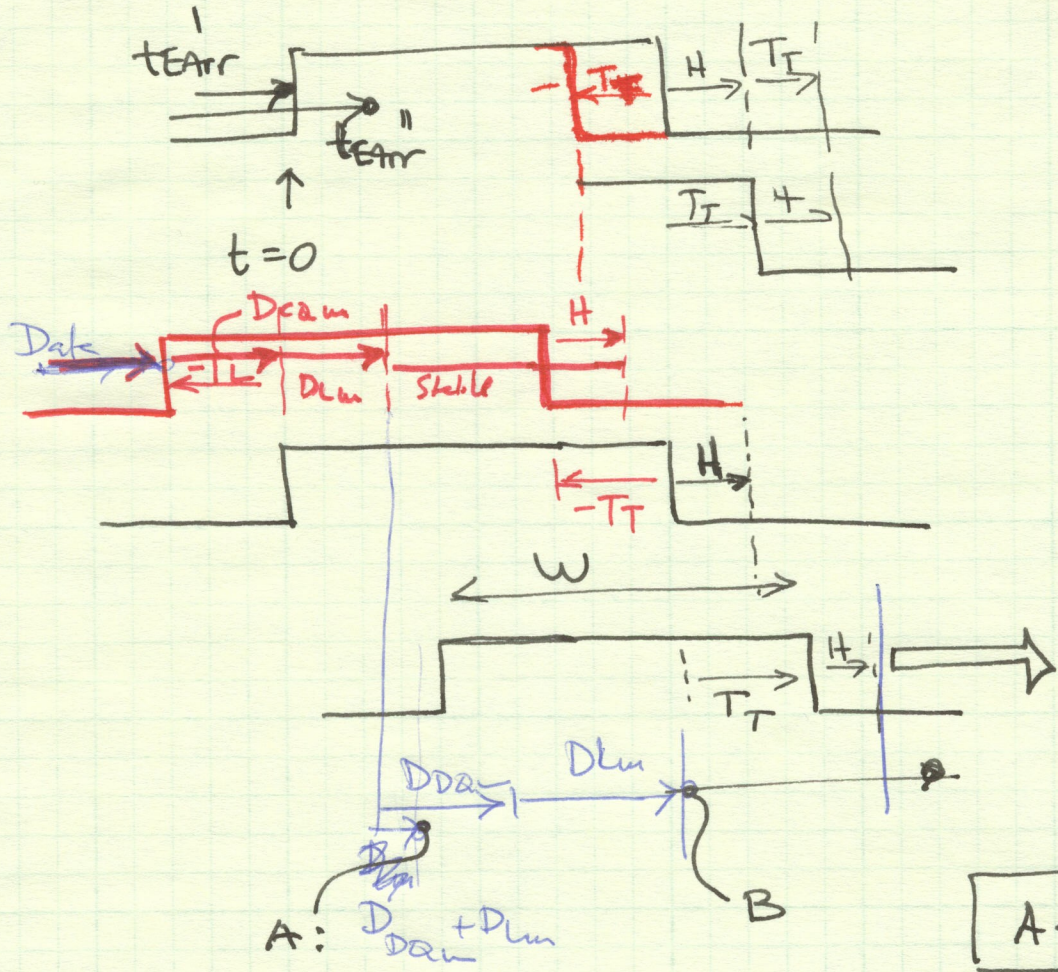 tEArr'
tEArr"
H
TT'
TT
H
t = 0
DCQm
H
Data
-TL
DLm
Stable
H
-TT
W
H
TT
DDQm
DLm
A:
DDQm + DLm
B
A